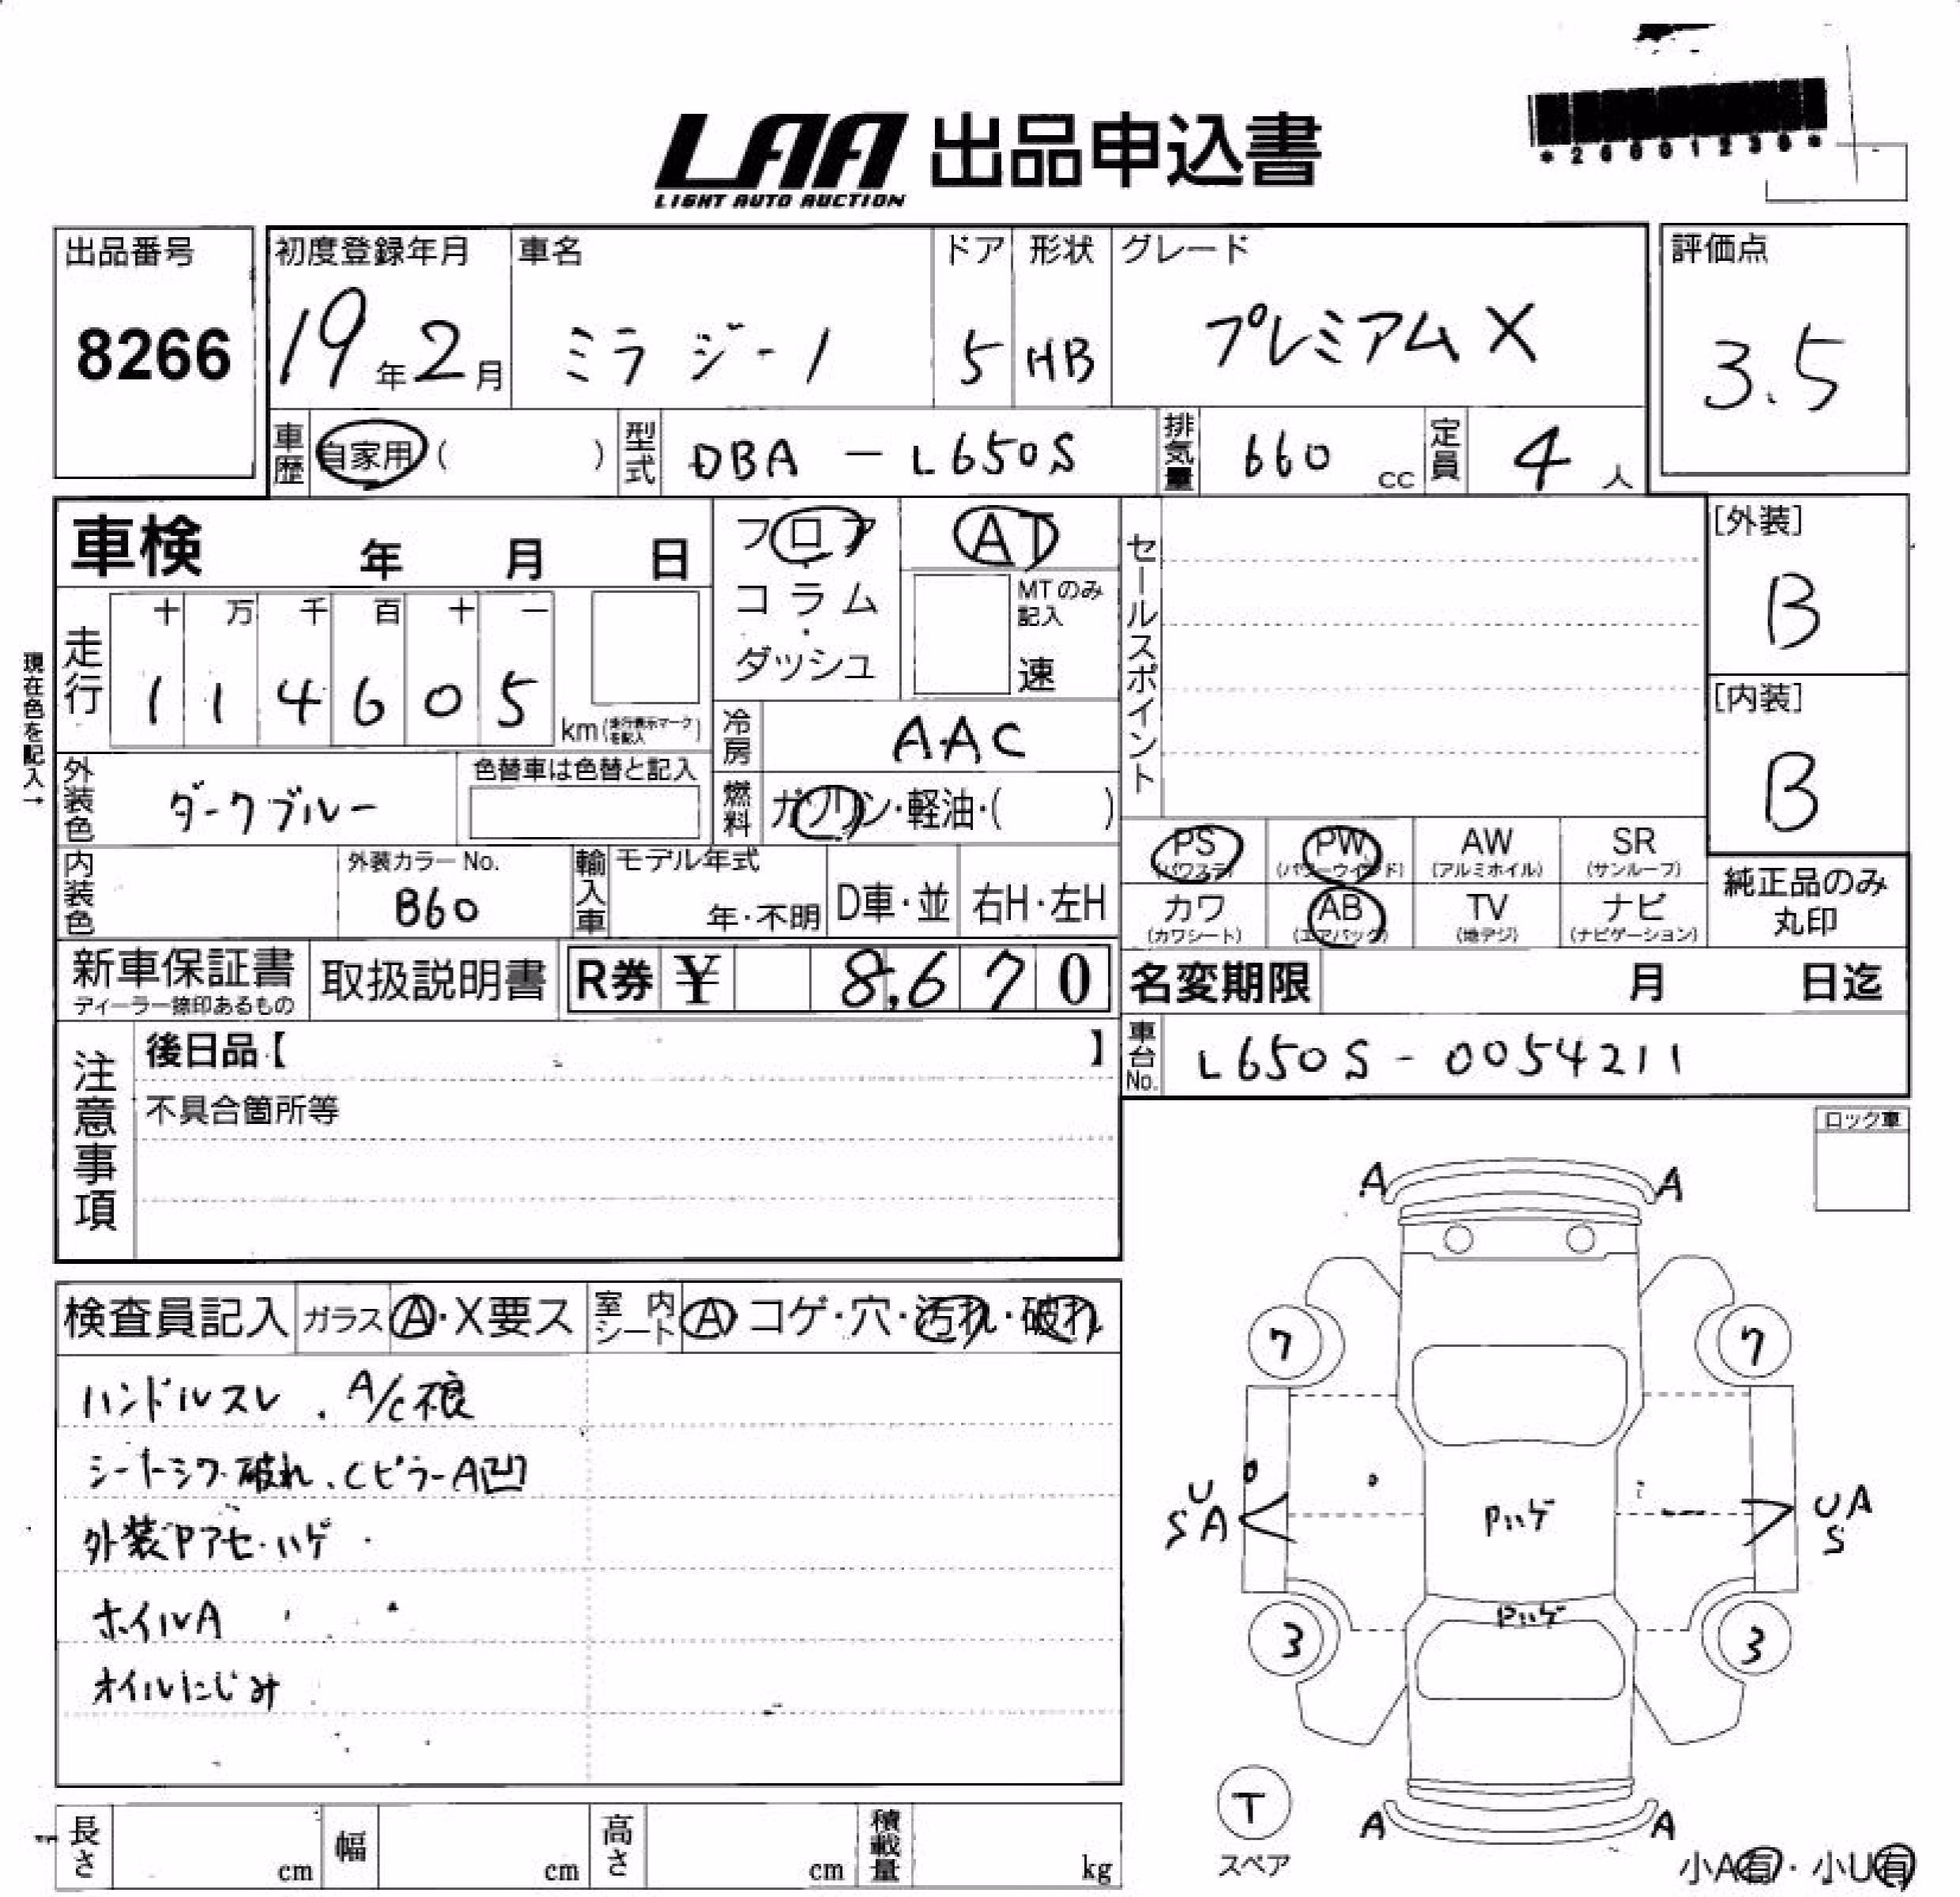 *26001236*
LAA 出品申込書
LIGHT AUTO AUCTION
出品番号
8266
初度登録年月
19年2月
車名
ミラ ジーノ
ドア
5
形状
HB
グレード
プレミアム X
評価点
3.5
車歴
自家用( )
型式
DBA - L650S
排気量
660 cc
定員
4 人
車検 年 月 日
現在色を記入→
走行
十 万 千 百 十 一
1 1 4 6 0 5
km(走行表示マークを記入)
フロア・コラム・ダッシュ
AT
MTのみ記入
速
冷房
AAC
燃料
ガソリン・軽油・( )
外装色
ダークブルー
色替車は色替と記入
内装色
外装カラーNo.
B60
輸入車
モデル年式
年・不明
D車・並
右H・左H
セールスポイント
[外装]
B
[内装]
B
PS
(パワステ)
PW
(パワーウインド)
AW
(アルミホイル)
SR
(サンルーフ)
カワ
(カワシート)
AB
(エアバック)
TV
(地デジ)
ナビ
(ナビゲーション)
純正品のみ
丸印
新車保証書
ディーラー捺印あるもの
取扱説明書
R券 ¥ 8,670
名変期限 月 日迄
車台No.
L650S - 0054211
注意事項
後日品【 】
不具合箇所等
ロック車
検査員記入
ガラス
A・X要ス
室内シート
A コゲ・穴・汚れ・破れ
ハンドルスレ . A/C不良
シートシワ・破れ、Cピラー A凹
外装Pアセ・ハゲ
ホイルA
オイルにじみ
A A
7 7
U
S A
Pハゲ
U A
S
Pハゲ
3 3
T
スペア
A A
小A有・小U有
長さ cm
幅 cm
高さ cm
積載量 kg